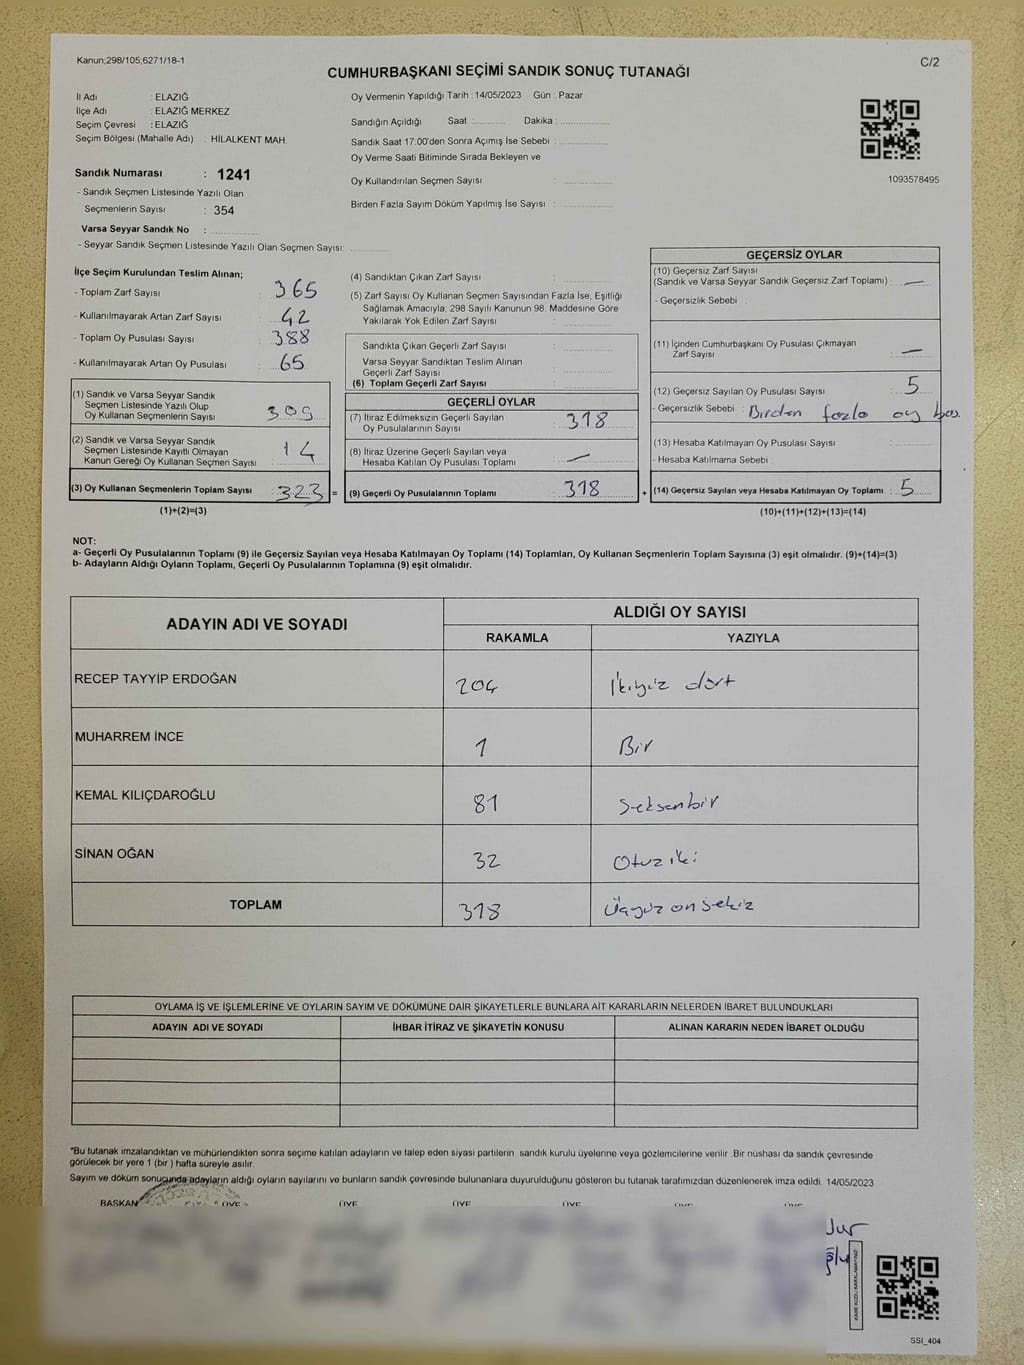 Kanun;298/105;6271/18-1
C/2
CUMHURBAŞKANI SEÇİMİ SANDIK SONUÇ TUTANAĞI
İl Adı : ELAZIĞ
İlçe Adı : ELAZIĞ MERKEZ
Seçim Çevresi : ELAZIĞ
Seçim Bölgesi (Mahalle Adı) : HİLALKENT MAH.
Sandık Numarası : 1241
- Sandık Seçmen Listesinde Yazılı Olan
Seçmenlerin Sayısı : 354
Varsa Seyyar Sandık No :
- Seyyar Sandık Seçmen Listesinde Yazılı Olan Seçmen Sayısı:
Oy Vermenin Yapıldığı Tarih : 14/05/2023 Gün : Pazar
Sandığın Açıldığı Saat : Dakika :
Sandık Saat 17:00'den Sonra Açımış İse Sebebi :
Oy Verme Saati Bitiminde Sırada Bekleyen ve
Oy Kullandırılan Seçmen Sayısı :
Birden Fazla Sayım Döküm Yapılmış İse Sayısı :
1093578495
İlçe Seçim Kurulundan Teslim Alınan;
- Toplam Zarf Sayısı : 365
- Kullanılmayarak Artan Zarf Sayısı : 42
- Toplam Oy Pusulası Sayısı : 388
- Kullanılmayarak Artan Oy Pusulası : 65
(1) Sandık ve Varsa Seyyar Sandık
Seçmen Listesinde Yazılı Olup
Oy Kullanan Seçmenlerin Sayısı : 309
(2) Sandık ve Varsa Seyyar Sandık
Seçmen Listesinde Kayıtlı Olmayan
Kanun Gereği Oy Kullanan Seçmen Sayısı : 14
(3) Oy Kullanan Seçmenlerin Toplam Sayısı : 323 =
(1)+(2)=(3)
(4) Sandıktan Çıkan Zarf Sayısı :
(5) Zarf Sayısı Oy Kullanan Seçmen Sayısından Fazla İse, Eşitliği
Sağlamak Amacıyla, 298 Sayılı Kanunun 98. Maddesine Göre
Yakılarak Yok Edilen Zarf Sayısı :
Sandıkta Çıkan Geçerli Zarf Sayısı :
Varsa Seyyar Sandıktan Teslim Alınan
Geçerli Zarf Sayısı :
(6) Toplam Geçerli Zarf Sayısı :
GEÇERLİ OYLAR
(7) İtiraz Edilmeksizin Geçerli Sayılan
Oy Pusulalarının Sayısı : 318
(8) İtiraz Üzerine Geçerli Sayılan veya
Hesaba Katılan Oy Pusulası Toplamı : —
(9) Geçerli Oy Pusulalarının Toplamı : 318 +
GEÇERSİZ OYLAR
(10) Geçersiz Zarf Sayısı
(Sandık ve Varsa Seyyar Sandık Geçersiz Zarf Toplamı) : —
- Geçersizlik Sebebi :
(11) İçinden Cumhurbaşkanı Oy Pusulası Çıkmayan
Zarf Sayısı : —
(12) Geçersiz Sayılan Oy Pusulası Sayısı : 5
- Geçersizlik Sebebi : Birden fazla oy bas.
(13) Hesaba Katılmayan Oy Pusulası Sayısı :
- Hesaba Katılmama Sebebi :
(14) Geçersiz Sayılan veya Hesaba Katılmayan Oy Toplamı : 5
(10)+(11)+(12)+(13)=(14)
NOT:
a- Geçerli Oy Pusulalarının Toplamı (9) ile Geçersiz Sayılan veya Hesaba Katılmayan Oy Toplamı (14) Toplamları, Oy Kullanan Seçmenlerin Toplam Sayısına (3) eşit olmalıdır. (9)+(14)=(3)
b- Adayların Aldığı Oyların Toplamı, Geçerli Oy Pusulalarının Toplamına (9) eşit olmalıdır.
ADAYIN ADI VE SOYADI
ALDIĞI OY SAYISI
RAKAMLA YAZIYLA
RECEP TAYYİP ERDOĞAN 204 İkiyüz dört
MUHARREM İNCE 1 Bir
KEMAL KILIÇDAROĞLU 81 Seksenbir
SİNAN OĞAN 32 Otuz iki
TOPLAM 318 Üçyüz on sekiz
OYLAMA İŞ VE İŞLEMLERİNE VE OYLARIN SAYIM VE DÖKÜMÜNE DAİR ŞİKAYETLERLE BUNLARA AİT KARARLARIN NELERDEN İBARET BULUNDUKLARI
ADAYIN ADI VE SOYADI İHBAR İTİRAZ VE ŞİKAYETİN KONUSU ALINAN KARARIN NEDEN İBARET OLDUĞU
*Bu tutanak imzalandıktan ve mühürlendikten sonra seçime katılan adayların ve talep eden siyasi partilerin sandık kurulu üyelerine veya gözlemcilerine verilir. Bir nüshası da sandık çevresinde
görülecek bir yere 1 (bir ) hafta süreyle asılır.
Sayım ve döküm sonucunda adayların aldığı oyların sayılarını ve bunların sandık çevresinde bulunanlara duyurulduğunu gösteren bu tutanak tarafımızdan düzenlenerek imza edildi. 14/05/2023
BAŞKAN ÜYE ÜYE ÜYE ÜYE ÜYE ÜYE
SSI_404